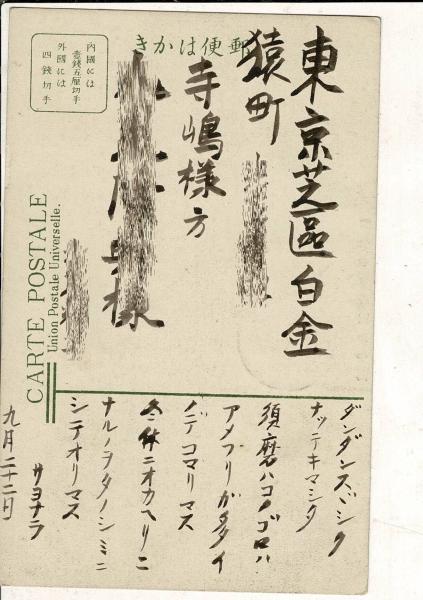 きかは便郵
内國には
壹錢五厘切手
外國には
四錢切手
CARTE POSTALE
Union Postale Universelle.
東京芝區白金
猿町
寺嶋様方
様
ダンダンスヾシク
ナッテキマシタ
須磨ハコノゴロハ
アメフリガタタイ
ノデコマリマス
冬休ニオカヘリニ
ナルノヲタノシミニ
シテオリマス
サヨナラ
九月二十二日